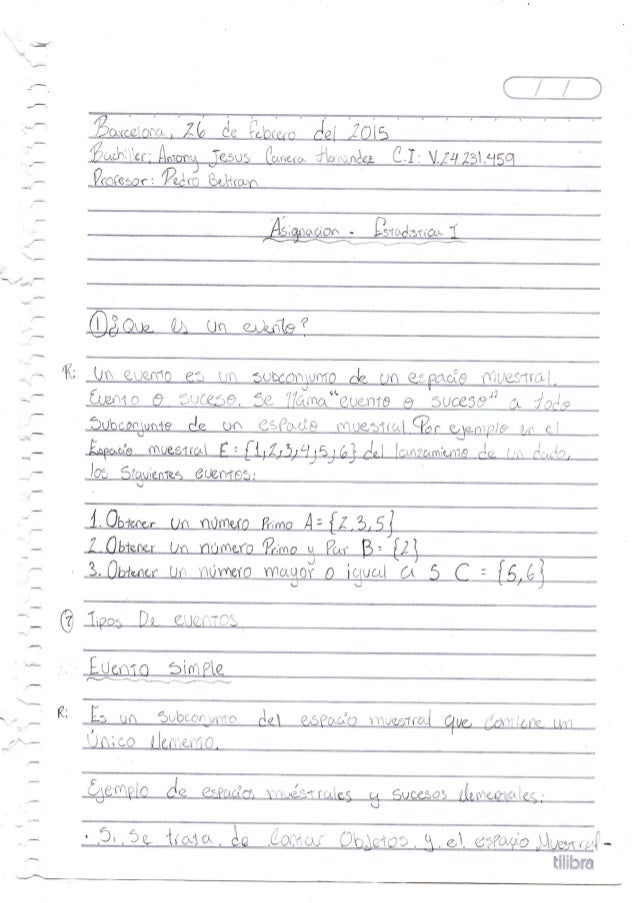 / /
Barcelona, 26 de Febrero del 2015
Bachiller: Antony Jesus Carrera Hernandez C.I: V.24.231.459
Profesor: Pedro Beltran
Asignacion - Estadistica I
① ¿Que es un evento?
R: Un evento es un subconjunto de un espacio muestral.
Evento o suceso. Se llama "evento o suceso" a todo
Subconjunto de un espacio muestral. Por ejemplo en el
Espacio muestral E: {1,2,3,4,5,6} del lanzamiento de un dado,
los Siguientes eventos:
1. Obtener un número Primo A = {2,3,5}
2. Obtener un número Primo y Par B: {2}
3. Obtener un número mayor o igual a 5 C = {5,6}
② Tipos De eventos
Evento Simple
R: Es un subconjunto del espacio muestral que contiene un
Único elemento.
Ejemplo de espacios muéstrales y sucesos elementales:
. Si, Se trata de contar Objetos y el espacio Muestral-
tilibra